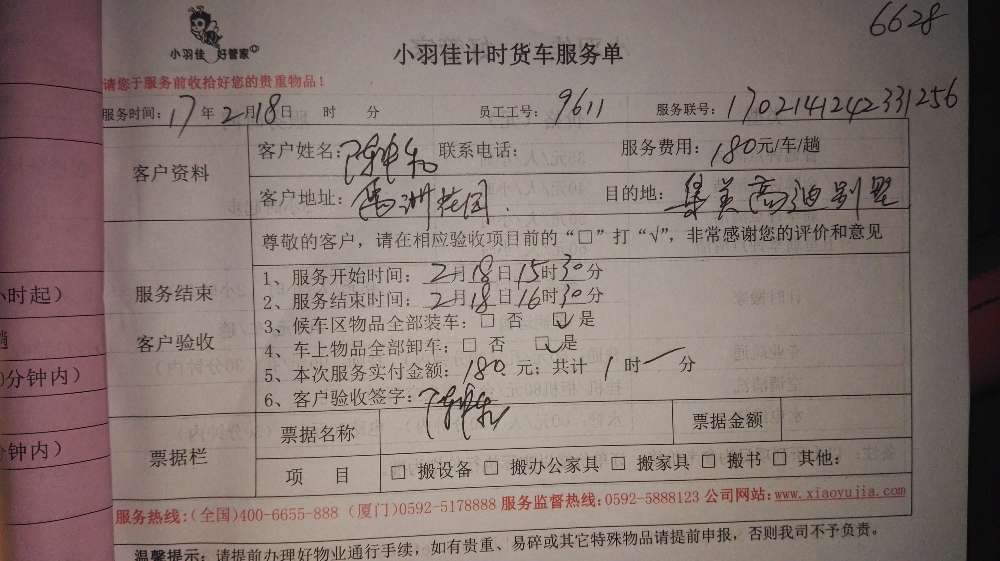 6628
小羽佳 好管家
小羽佳计时货车服务单
请您于服务前收拾好您的贵重物品！
服务时间：17年2月18日 时 分 员工工号：9611 服务联号：1702141242331256
客户资料
客户姓名：陈 联系电话： 服务费用：180元/车/趟
客户地址：禹洲花园 目的地：集美高迪别墅
尊敬的客户，请在相应验收项目前的“□”打“√”，非常感谢您的评价和意见
服务结束
客户验收
1、服务开始时间：2月18日15时30分
2、服务结束时间：2月18日16时30分
3、候车区物品全部装车：□ 否 ☑是
4、车上物品全部卸车：□ 否 ☑是
5、本次服务实付金额：180元；共计 1 时 — 分
6、客户验收签字：陈
票据栏
票据名称 票据金额
项 目 □ 搬设备 □ 搬办公家具 □ 搬家具 □ 搬书 □ 其他：
服务热线：（全国）400-6655-888（厦门）0592-5178888 服务监督热线：0592-5888123 公司网站：www.xiaoyujia.com
温馨提示：请提前办理好物业通行手续，如有贵重、易碎或其它特殊物品请提前申报，否则我司不予负责。
小时起）
趟
0分钟内）
分钟内）